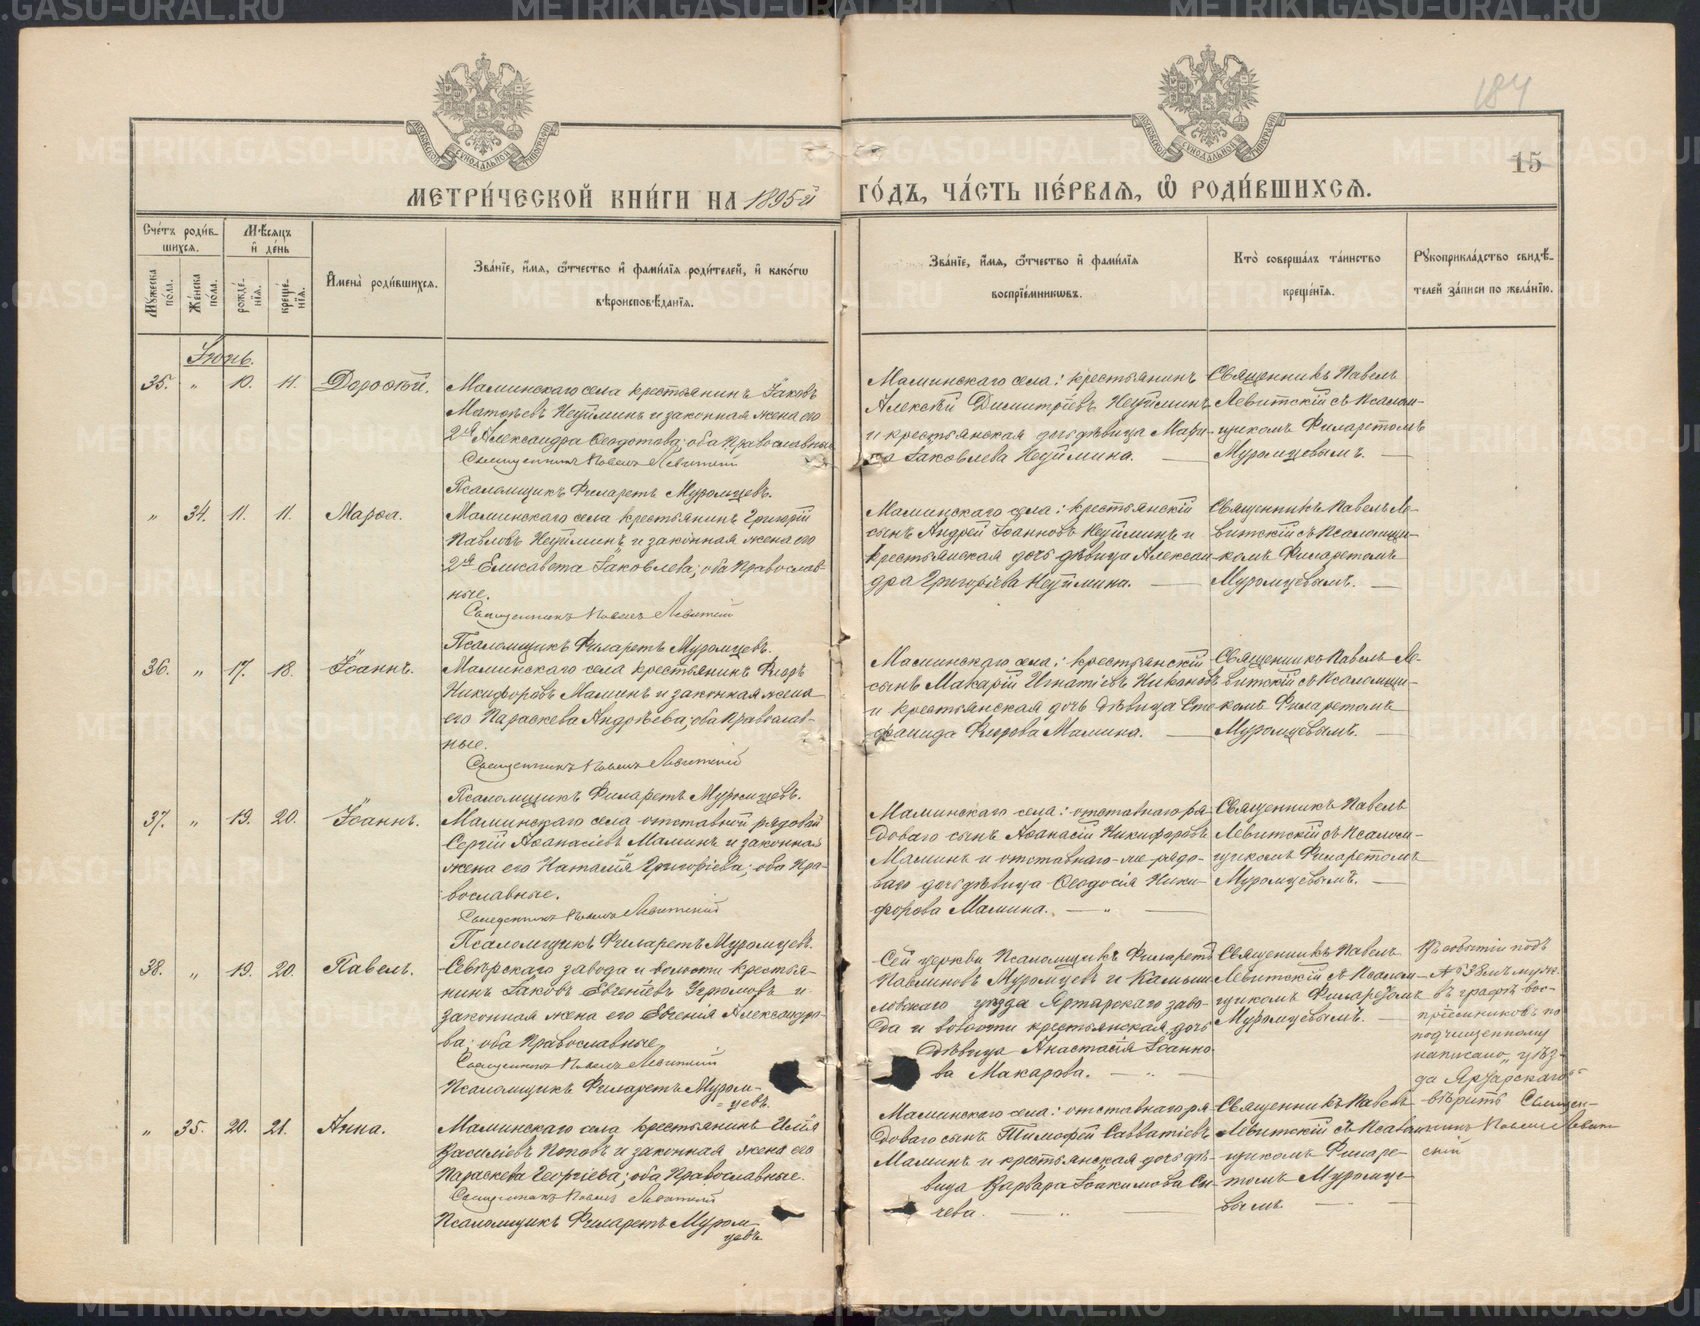 METRIKI.GASO-URAL.RU
184
15
МОСКОВСКОЙ СѴНОДАЛЬНОЙ ТИПОГРАФІИ
МЕТРИ́ЧЕСКОЙ КНИ́ГИ НА 1895й ГО́ДЪ, ЧА́СТЬ ПЕ́РВАЯ, Ѡ҆ РОДИ́ВШИХСЯ.
Сче́тъ роди́вшихся.
Мѣ́сяцъ и҆ де́нь
Мꙋ́жеска по́ла.
Же́нска по́ла.
рожде́нїѧ.
креще́нїѧ.
И҆мена̀ роди́вшихся.
Зва́нїе, и҆́мѧ, ѻ҆́тчество и҆ фами́лїѧ роди́телей, и҆ како́гѡ
вѣроисповѣ́данїѧ.
Зва́нїе, и҆́мѧ, ѻ҆́тчество и҆ фами́лїѧ
воспрїе́мникѡвъ.
Кто̀ соверша́лъ та́инство
креще́нїѧ.
Рꙋкоприкла́дство свидѣ́телей за́писи по жела́нїю.
Іюнь.
35. „ 10. 11. Дороѳей.
Маминскаго села крестьянинъ Іаковъ
Матѳеевъ Неуйминъ и законная жена его
2я Александра Ѳеодотова; оба Православные
Священникъ Павелъ Левитскій
Псаломщикъ Филаретъ Муромцевъ.
Маминскаго села: крестьянинъ
Алексѣй Димитріевъ Неуйминъ
и крестьянская дочь дѣвица Мари-
на Іаковлева Неуймина.
Священникъ Павелъ
Левитскій съ Псалом-
щикомъ Филаретомъ
Муромцевымъ.
„ 34. 11. 11. Марѳа.
Маминскаго села крестьянинъ Григорій
Павловъ Неуйминъ и законная жена его
2я Елисавета Іаковлева; оба Православ-
ные.
Священникъ Павелъ Левитскій
Псаломщикъ Филаретъ Муромцевъ.
Маминскаго села: крестьянскій
сынъ Андрей Іоанновъ Неуйминъ и
крестьянская дочь дѣвица Алексан
дра Григорьева Неуймина.
Священникъ Павелъ Ле-
витскій съ Псаломщи-
комъ Филаретомъ
Муромцевымъ.
36. „ 17. 18. Іоаннъ.
Маминскаго села крестьянинъ Флоръ
Никифоровъ Маминъ и законная жена
его Параскева Андреева; оба Православ-
ные.
Священникъ Павелъ Левитскій
Псаломщикъ Филаретъ Муромцевъ.
Маминскаго села: крестьянскій
сынъ Макарій Игнатіевъ
и крестьянская дочь дѣвица Сте
фанида Флорова Мамина.
Священникъ Павелъ Ле-
витскій съ Псаломщи-
комъ Филаретомъ
Муромцевымъ.
37. „ 19. 20. Іоаннъ.
Маминскаго села отставной рядовой
Сергій Аѳанасіевъ Маминъ и законная
жена его Наталія Григоріева; оба Пра-
вославные.
Священникъ Павелъ Левитскій
Псаломщикъ Филаретъ Муромцевъ.
Маминскаго села: отставнаго ря-
доваго сынъ Аѳанасій Никифоровъ
Маминъ и отставнаго-же рядо-
ваго дочь дѣвица Ѳеодосія Ники-
форова Мамина.
Священникъ Павелъ
Левитскій съ Псалом-
щикомъ Филаретомъ
Муромцевымъ.
38. „ 19. 20. Павелъ.
Сѣверскаго завода и волости крестья-
нинъ Іаковъ Евгеніевъ Угрюмовъ и
законная жена его Евгенія Александро-
ва; оба Православные
Священникъ Павелъ Левитскій
Псаломщикъ Филаретъ Муром-
цевъ.
Сей церкви Псаломщикъ Филаретъ
Павлиновъ Муромцевъ и Камыш
ловскаго уѣзда заво-
да и волости крестьянская дочь
дѣвица Анастасія Іоанно-
ва Макарова.
Священникъ Павелъ
Левитскій съ Псалом-
щикомъ Филаретомъ
Муромцевымъ.
Въ событіи подъ
№ 38мъ муж.
въ графѣ вос-
пріемниковъ по
подчищенному
написано „уѣз-
да
вѣрить Священ-
никъ Павелъ Левит
скій
„ 35. 20. 21. Анна.
Маминскаго села крестьянинъ Илія
Василіевъ Поповъ и законная жена его
Параскева Георгіева; оба Православные.
Священникъ Павелъ Левитскій
Псаломщикъ Филаретъ Муром-
цевъ.
Маминскаго села: отставнаго ря
доваго сынъ Тимоѳей Савватіевъ
Маминъ и крестьянская дочь дѣ-
вица Варвара Іоакимова Сы-
чева.
Священникъ Павелъ
Левитскій съ Псалом
щикомъ Филаре-
томъ Муромце-
вымъ.